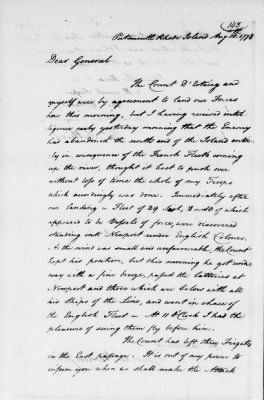 (148)
Portsmouth Rhode Island Aug. 10. 1778
Dear General
The Count D'Estaing and
myself were by agreement to land our Forces
here this morning, but I having received intel
ligence early yesterday morning that the Enemy
had abandoned the north end of the Island entire
ly in consequence of the French Fleets coming
up the river, thought it best to push over
without loss of time the whole of my Troops
which accordingly was done. Immediately after
our landing a Fleet of 29 Sail, 8 or 10 of which
appeared to be Vessels of force, were discovered
standing into Newport under English Colours.
As the wind was small and unfavourable, the Count
kept his position, but this morning he got under
way with a fine breeze, passed the batteries at
Newport and those which are below with all
his Ships of the Line, and went in chase of
the English Fleet - At 11 O'Clock I had the
pleasure of seeing them fly before him.
The Count has left three Frigates
in the East passage. It is out of my power to
inform you when we shall make the Attack